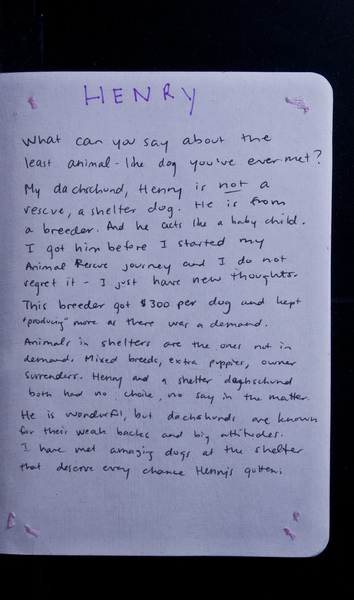 HENRY
What can you say about the
least animal-like dog you've ever met?
My dachschund, Henny is not a
rescue, a shelter dog. He is from
a breeder. And he acts like a baby child.
I got him before I started my
Animal Rescue journey and I do not
regret it - I just have new thoughts.
This breeder got $300 per dog and kept
"producing" more as there was a demand.
Animals in shelters are the ones not in
demand. Mixed breeds, extra puppies, owner
surrenders. Henny and a shelter daghschund
both had no choice, no say in the matter.
He is wonderful, but dachshunds are known
for their weak backs and big attitudes.
I have met amazing dogs at the shelter
that deserve every chance Henny's gotten.